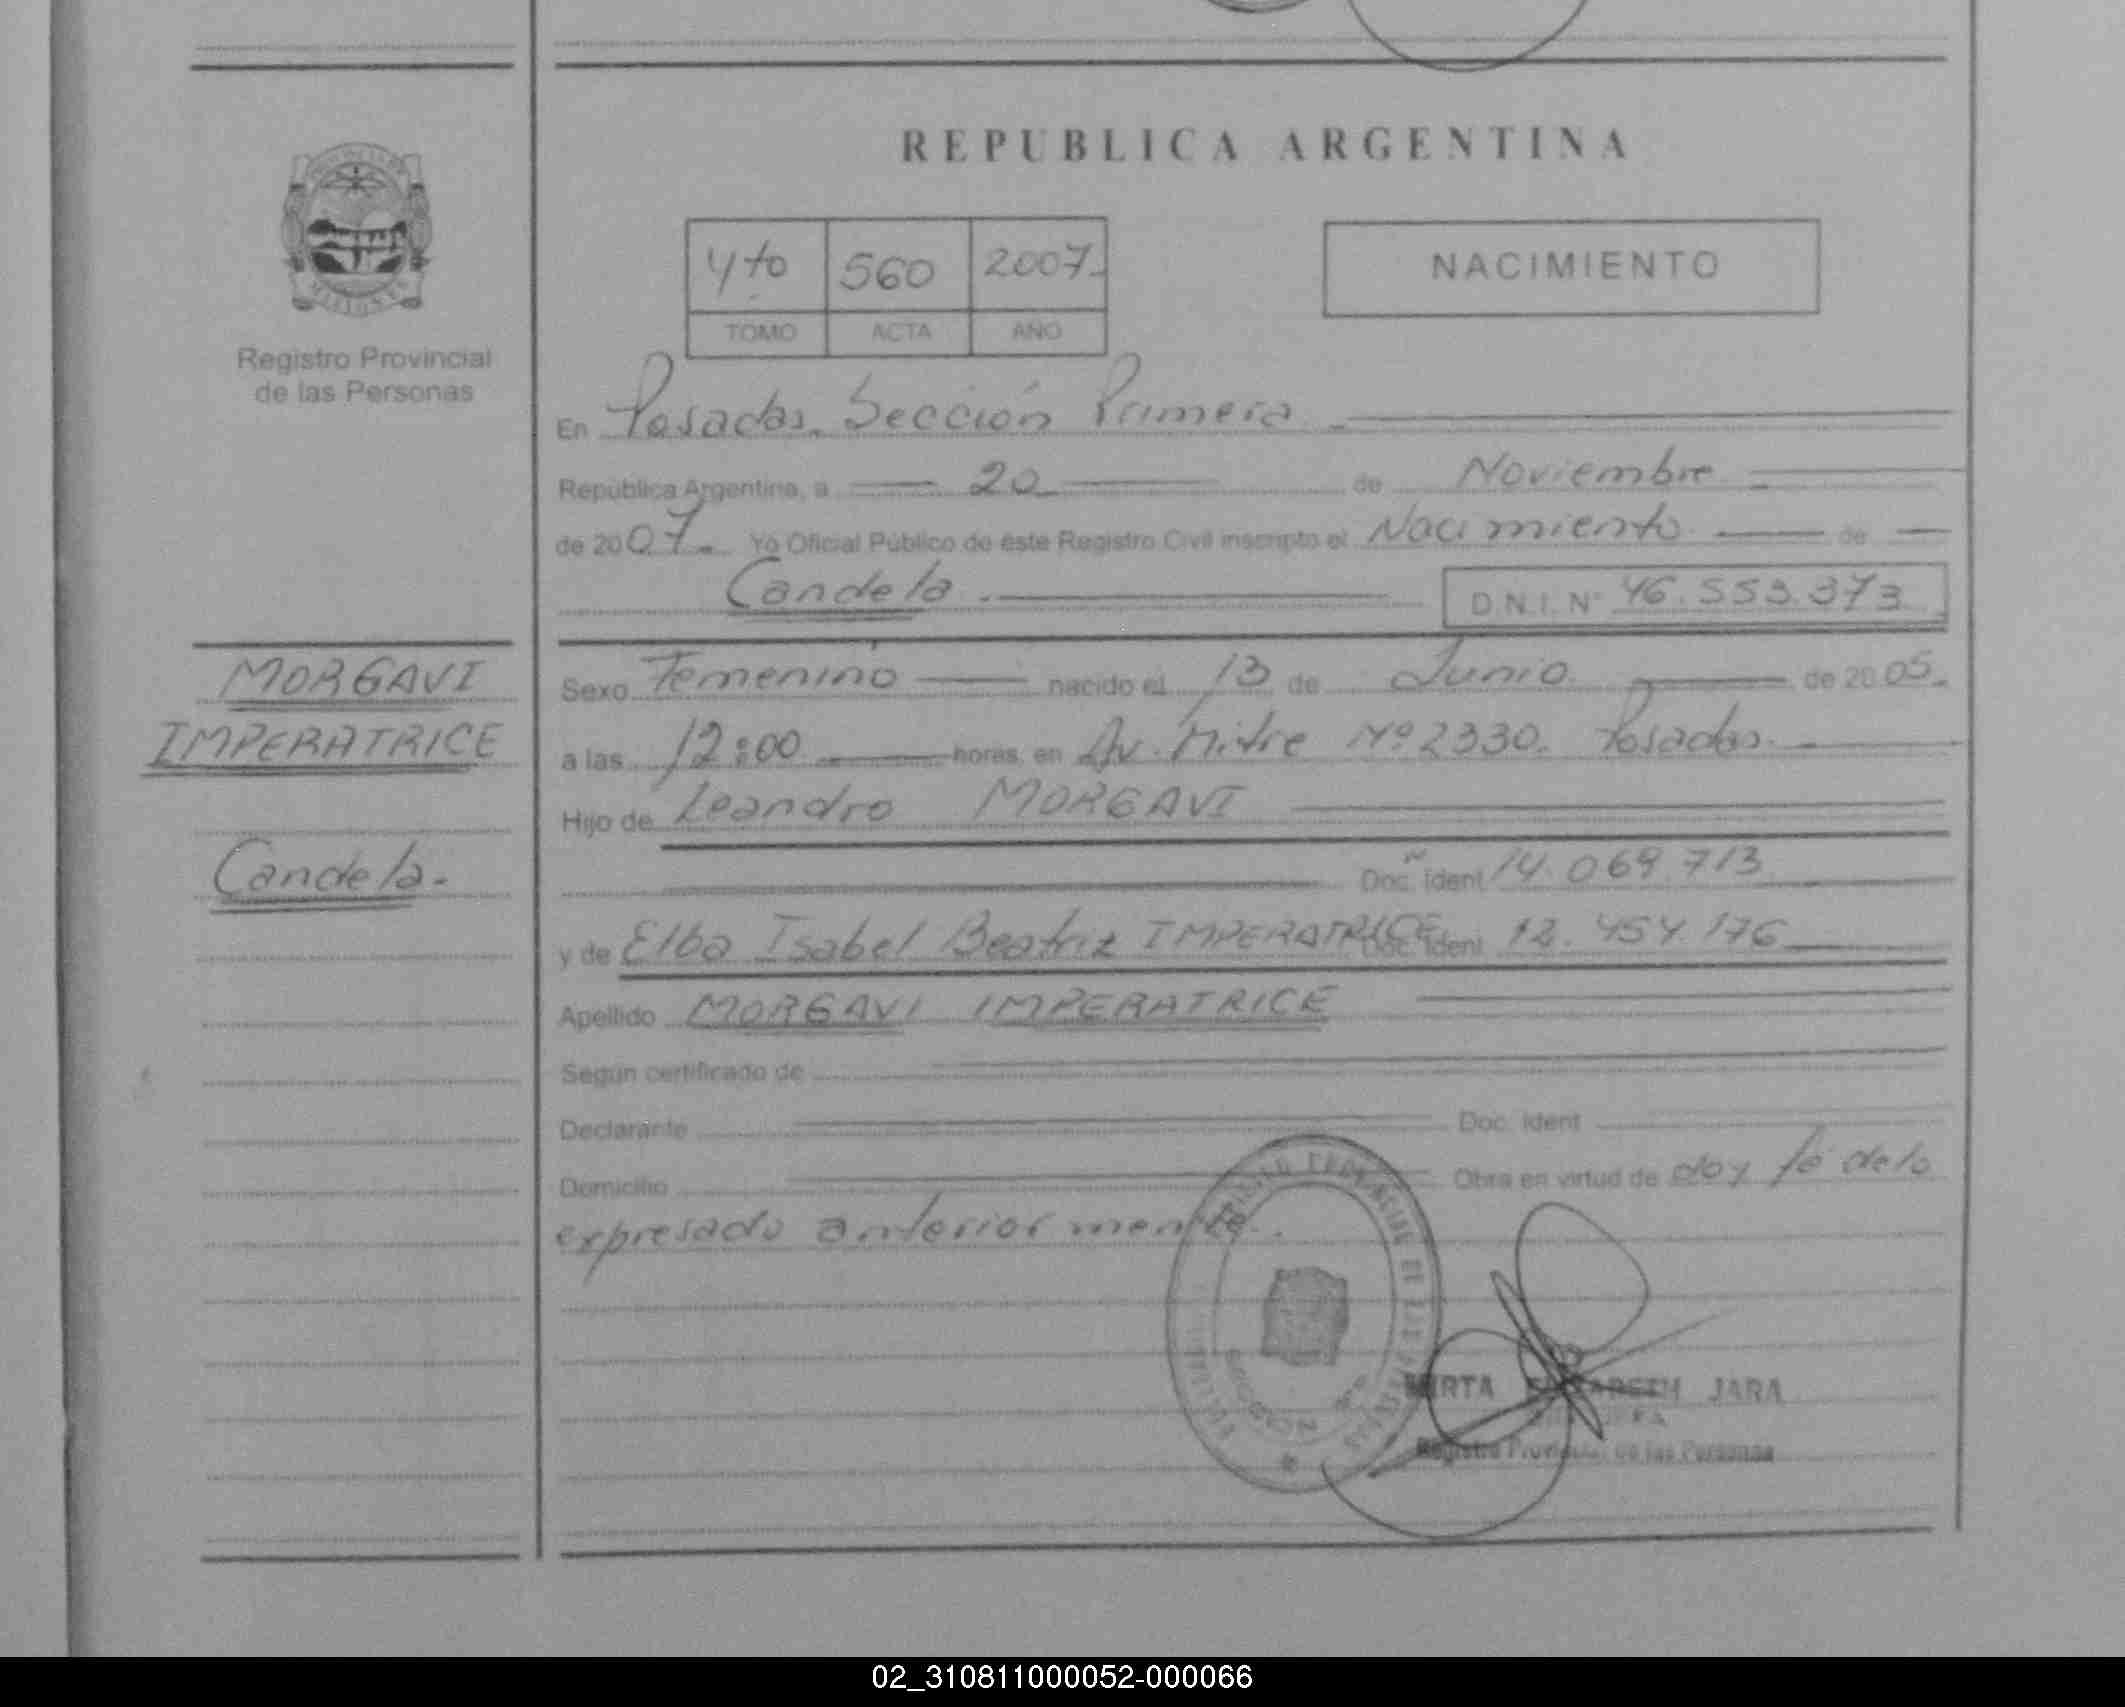 REPUBLICA ARGENTINA
4to 560 2007
TOMO ACTA AÑO
NACIMIENTO
MISIONES
Registro Provincial
de las Personas
En Posadas. Sección Primera
República Argentina, a 20 de Noviembre
de 2007. Yo Oficial Público de éste Registro Civil inscripto el Nacimiento de
Candela. D.N.I. Nº 46.553.373
MORGAVI
IMPERATRICE
Candela.
Sexo Femenino nacido el 13 de Junio de 2005.
a las 12:00 horas, en Av. Mitre Nº 2330. Posadas.
Hijo de Leandro MORGAVI
Doc. Ident 14.069.713
y de Elba Isabel Beatriz IMPERATRICE Doc. Ident 12.454.176
Apellido MORGAVI IMPERATRICE
Según certificado de
Declarante Doc. Ident
Domicilio Obra en virtud de doy fé de lo
expresado anteriormente.
MIRTA ELIZABETH JARA
Registro Provincial de las Personas
02_310811000052-000066